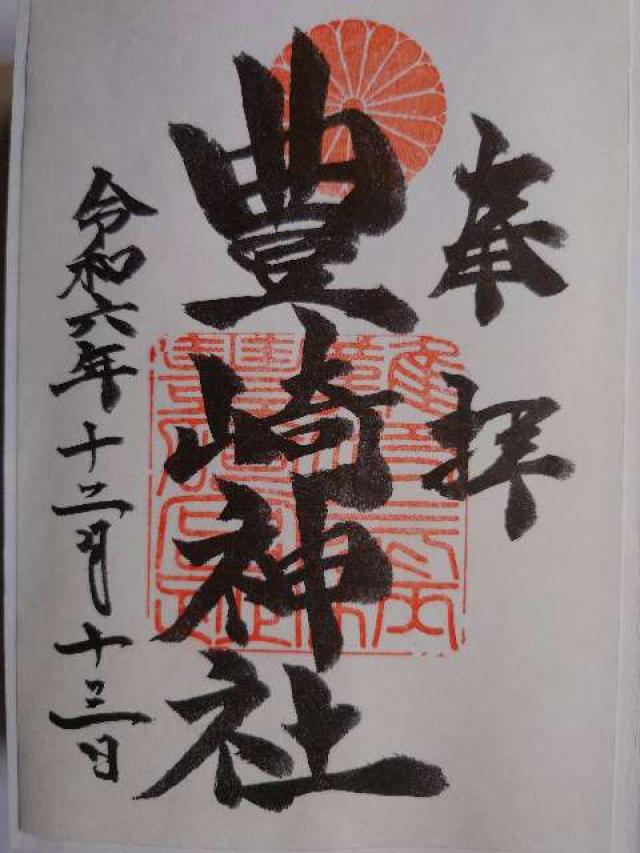 奉拝
豊崎神社
令和六年十二月十三日